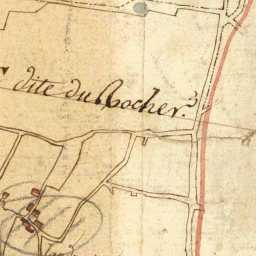 dite du Rocher.